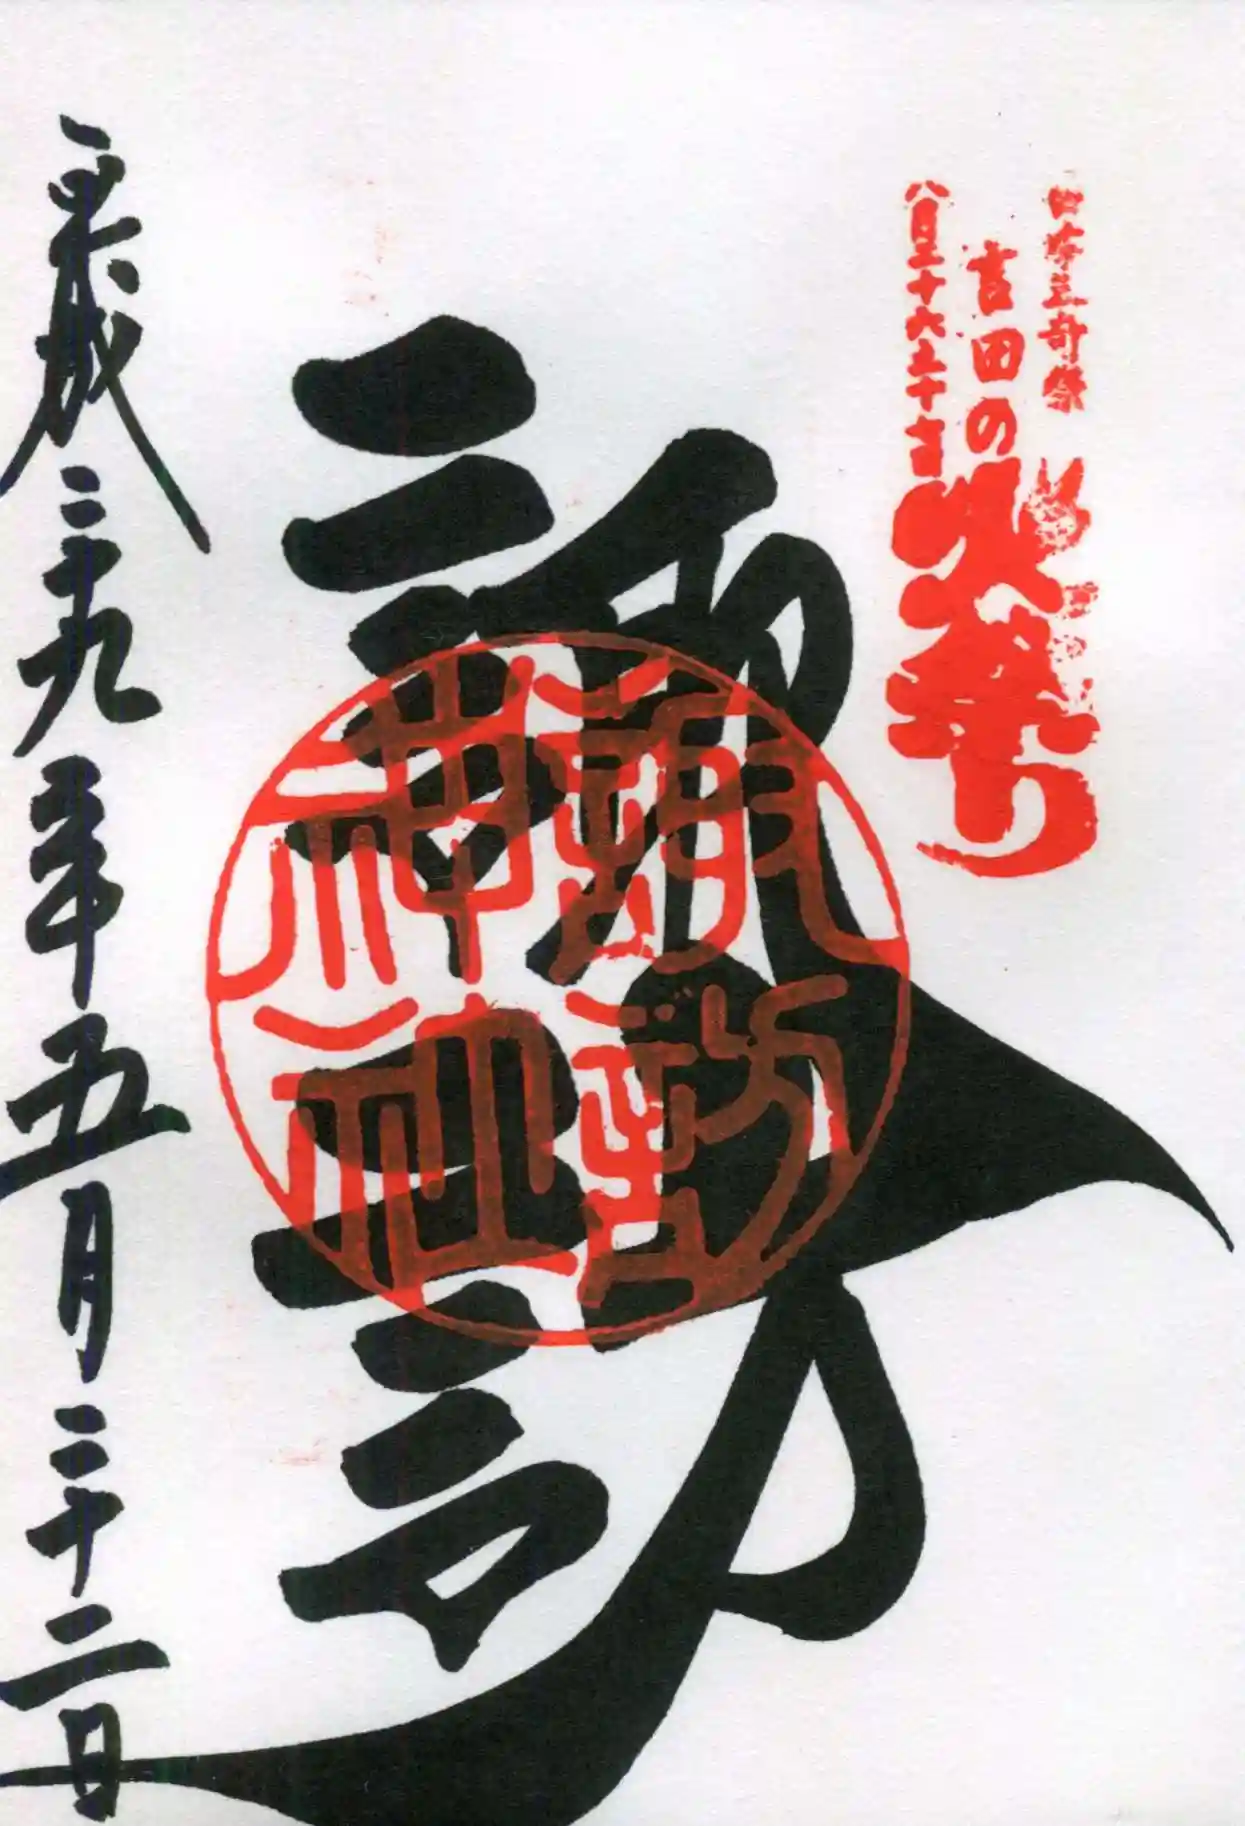 日本三奇祭
吉田の
火祭り
八月二十六二十七日
諏訪
諏訪
神社
平成二十九年五月二十二日